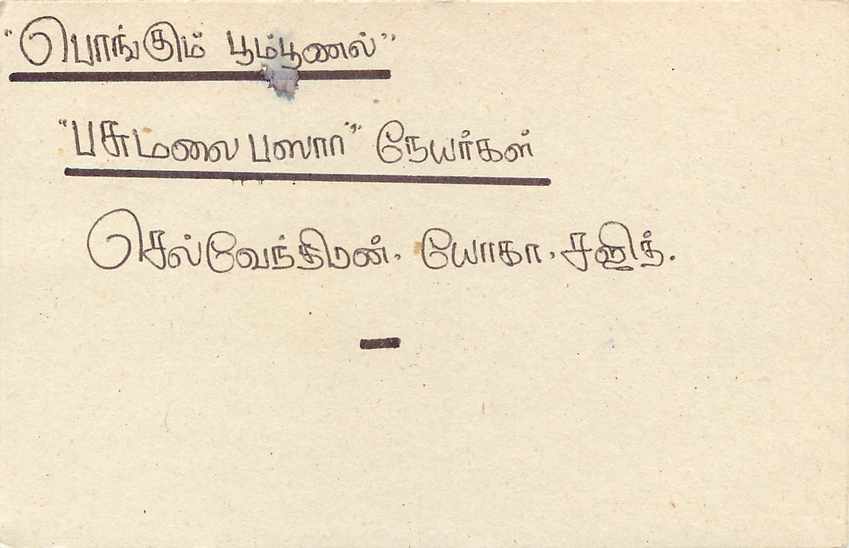 "பொங்கும் பூம்பூணல்"
"பசுமலை பஸார்" நேயர்கள்
செல்வேந்திமன், யோகா, சஜித்.